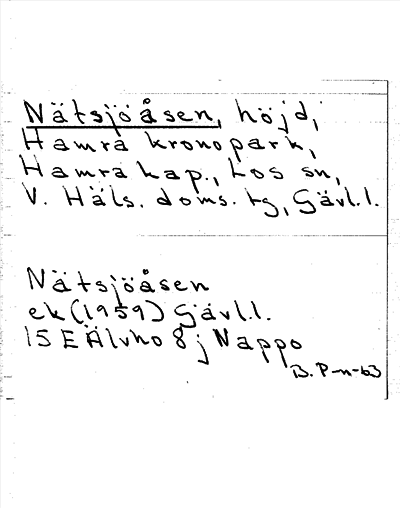 Nätsjöåsen, höjd,
Hamra kronopark,
Hamra kap., Los sn,
V. Häls. doms. tg, Gävl.l.
Nätsjöåsen
ek (1959) Gävl.l.
15 E Älvho 8 j Nappo
B. P-n-63